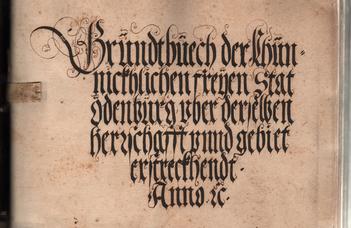 Gründtbuech der Khün-
nickhlichen freyen Stat
Ödenburg vber derselben
herrschafft vnnd gebiet
erstreckhendt.
Anno. ꝛc.